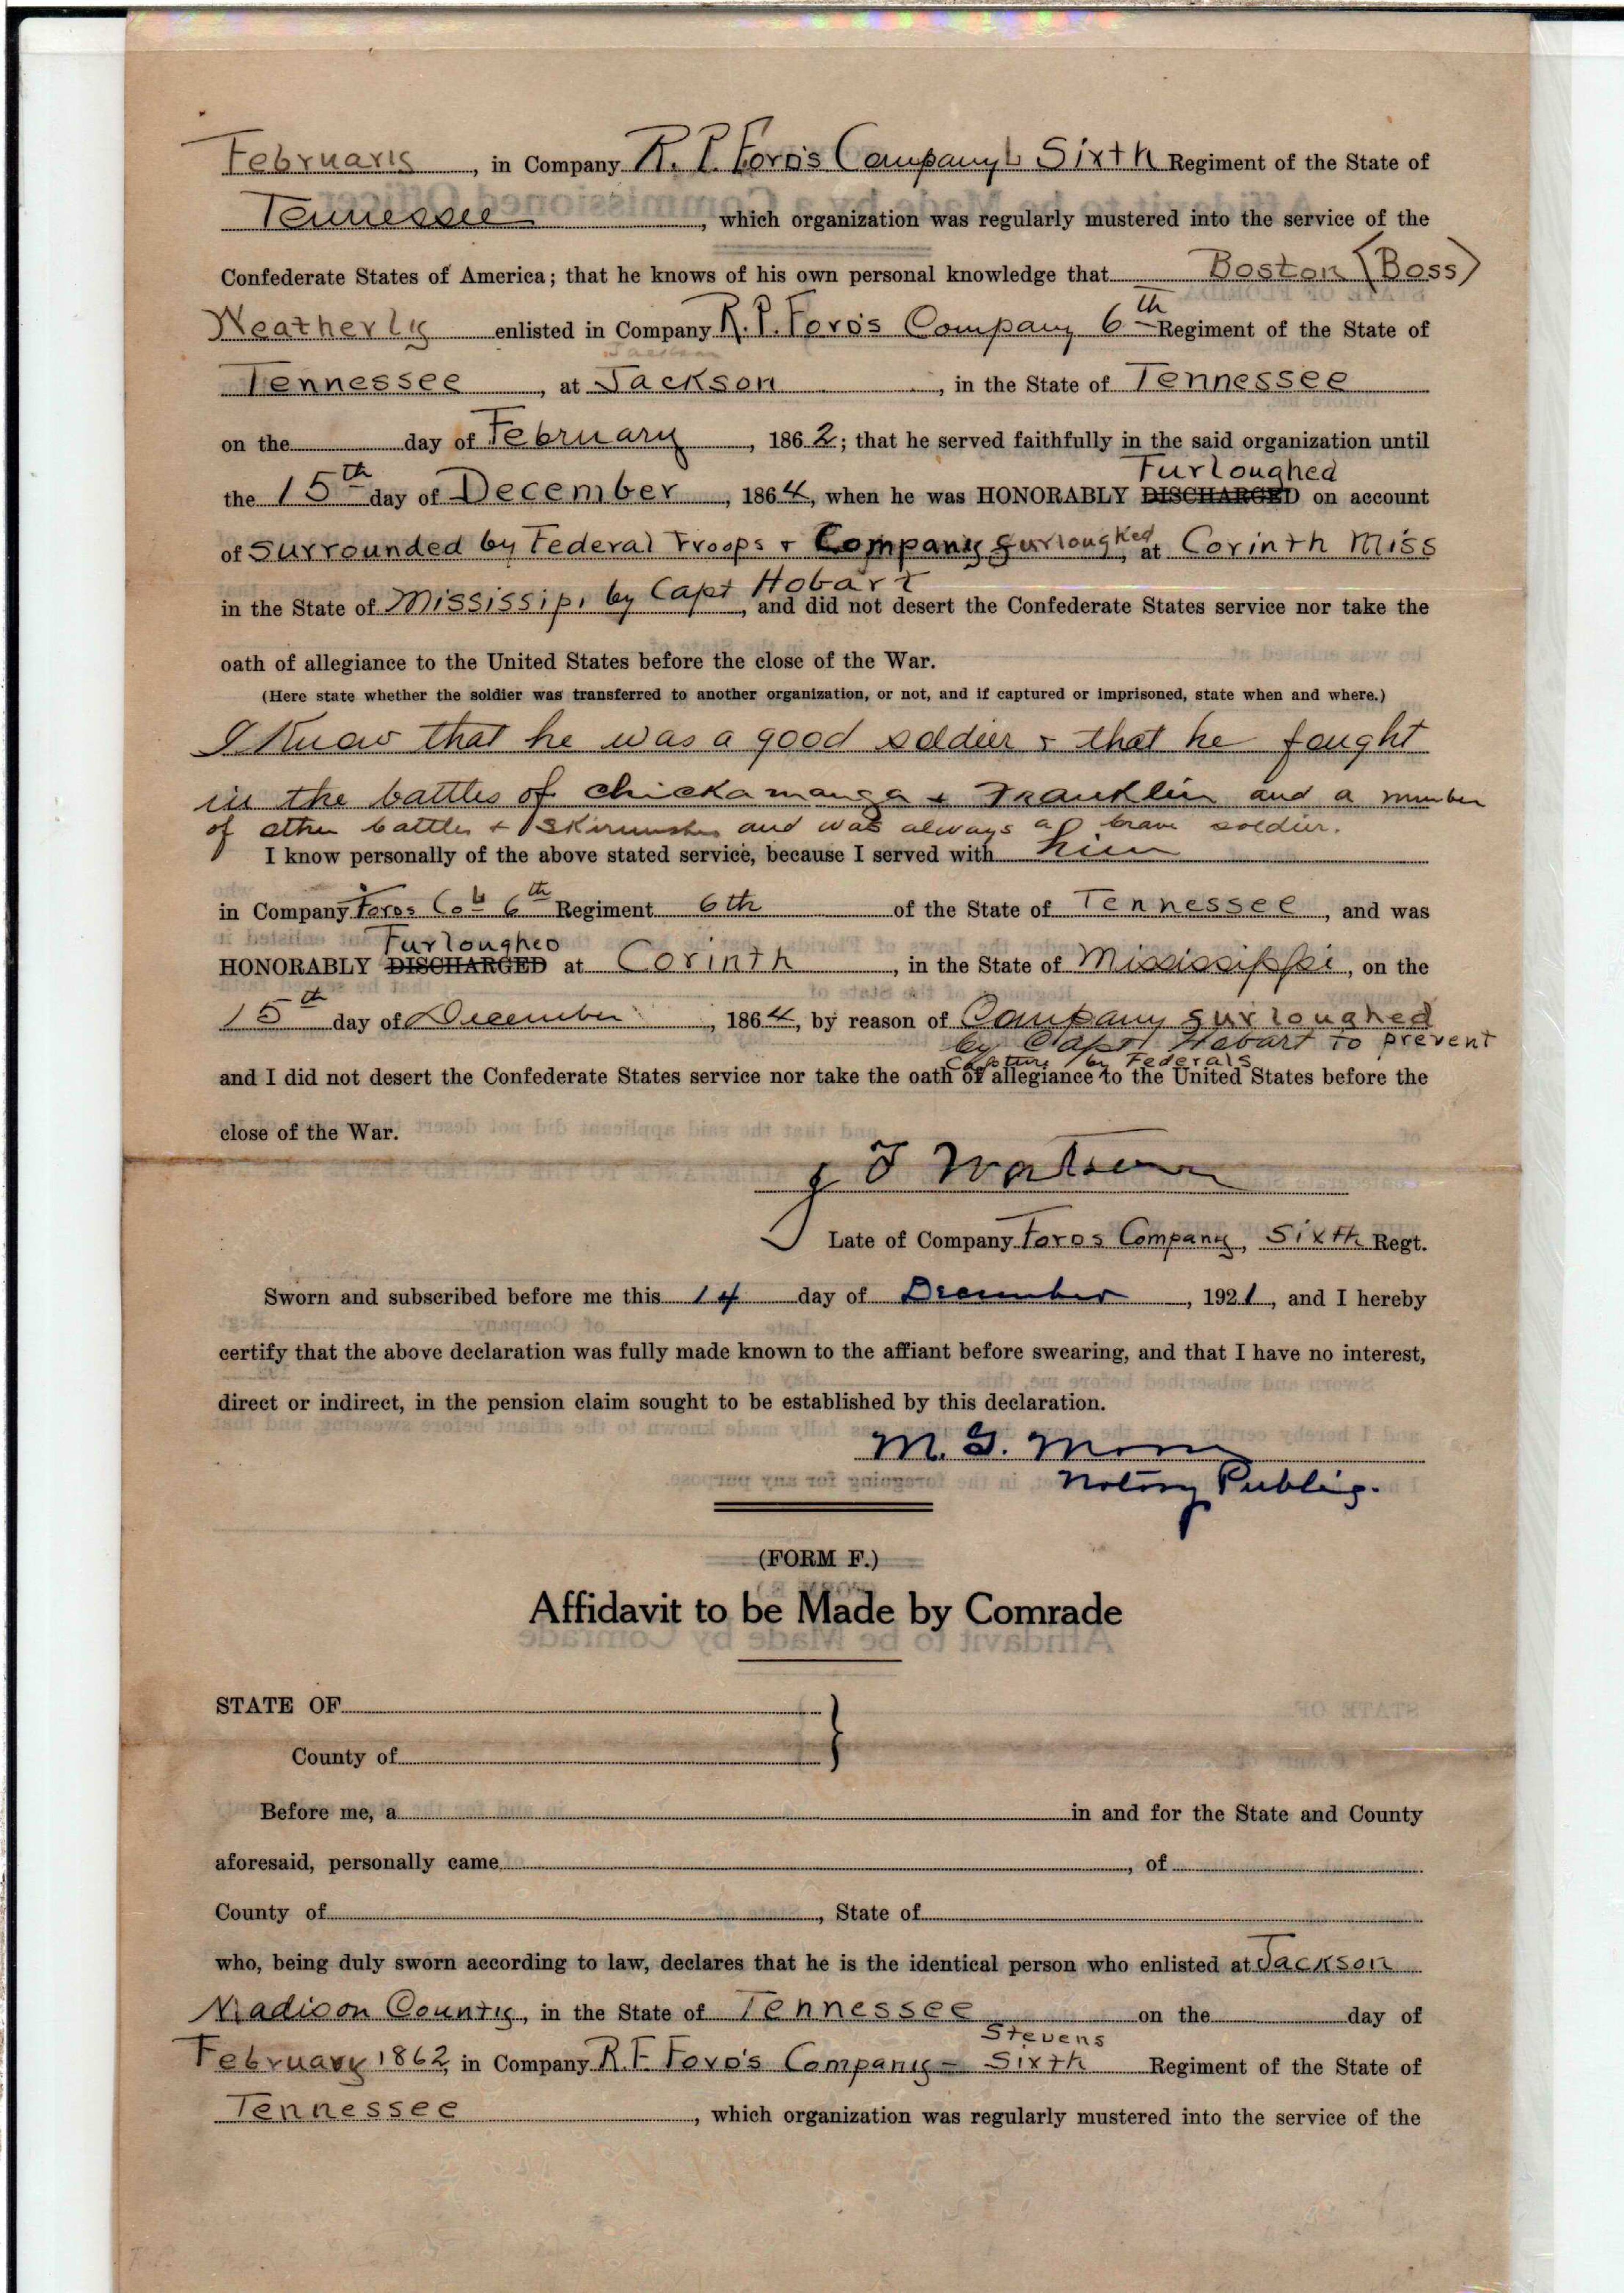 February, in Company R. P. Ford's Company L Sixth Regiment of the State of
Tennessee, which organization was regularly mustered into the service of the
Confederate States of America; that he knows of his own personal knowledge that Boston (Boss)
Weatherly enlisted in Company R. P. Ford's Company 6th Regiment of the State of
Tennessee, at Jackson, in the State of Tennessee
on the day of February, 1862; that he served faithfully in the said organization until
Furloughed
the 15th day of December, 1864, when he was HONORABLY DISCHARGED on account
of Surrounded by Federal Troops + Company furloughed, at Corinth Miss
in the State of Mississipi by Capt Hobart, and did not desert the Confederate States service nor take the
oath of allegiance to the United States before the close of the War.
(Here state whether the soldier was transferred to another organization, or not, and if captured or imprisoned, state when and where.)
I Know that he was a good soldier + that he fought
in the battles of chickamauga + Franklin and a number
of other battles + skirmishes and was always a brave soldier.
I know personally of the above stated service, because I served with him
in Company Fords Co L 6th Regiment 6th of the State of Tennessee, and was
Furloughed
HONORABLY DISCHARGED at Corinth, in the State of Mississippi, on the
15th day of December, 1864, by reason of Company furloughed
by Capt Hobart to prevent
capture by Federals
and I did not desert the Confederate States service nor take the oath of allegiance to the United States before the
close of the War.
J T Watson
Late of Company Fords Company, Sixth Regt.
Sworn and subscribed before me this 14 day of December, 1921, and I hereby
certify that the above declaration was fully made known to the affiant before swearing, and that I have no interest,
direct or indirect, in the pension claim sought to be established by this declaration.
M. G.
Notary Public.
(FORM F.)
Affidavit to be Made by Comrade
STATE OF
County of
Before me, a in and for the State and County
aforesaid, personally came, of
County of, State of
who, being duly sworn according to law, declares that he is the identical person who enlisted at Jackson
Madison County, in the State of Tennessee on the day of
Stevens
February 1862, in Company R. F. Ford's Company - Sixth Regiment of the State of
Tennessee, which organization was regularly mustered into the service of the